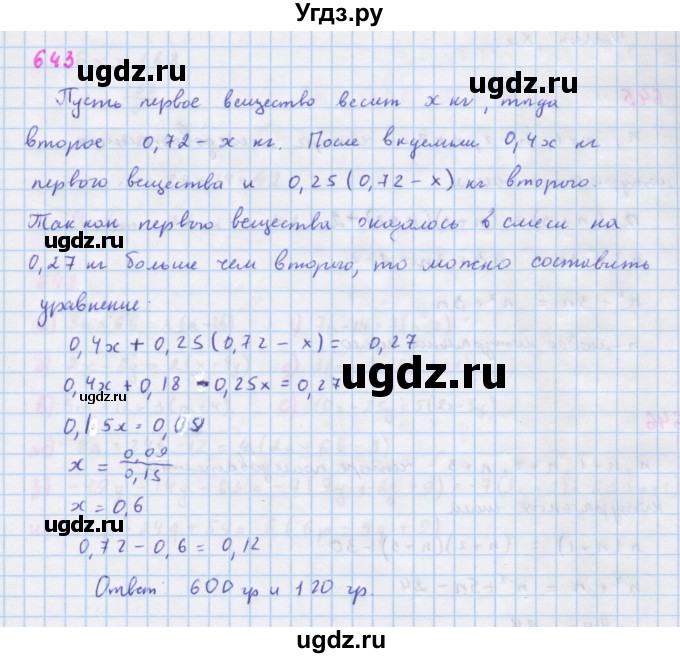 Угдз.ру
643
ugdz.ru
ugdz.ru
Пусть первое вещество весит x кг, тогда
второе 0,72 - x кг. После вкуемыи 0,4x кг
первого вещества и 0,25(0,72 - x) кг второго.
ugdz.ru
Так как первого вещества оказалось в смеси на
ugdz.ru
0,27 кг больше чем второго, то можно составить
уравнение:
0,4x + 0,25(0,72 - x) = 0,27
ugdz.ru
0,4x + 0,18 - 0,25x = 0,27
ugdz.ru
0,15x = 0,09
x = 0,09/0,15
x = 0,6
ugdz.ru
ugdz.ru
0,72 - 0,6 = 0,12
Ответ 600 гр и 120 гр.
ugdz.ru